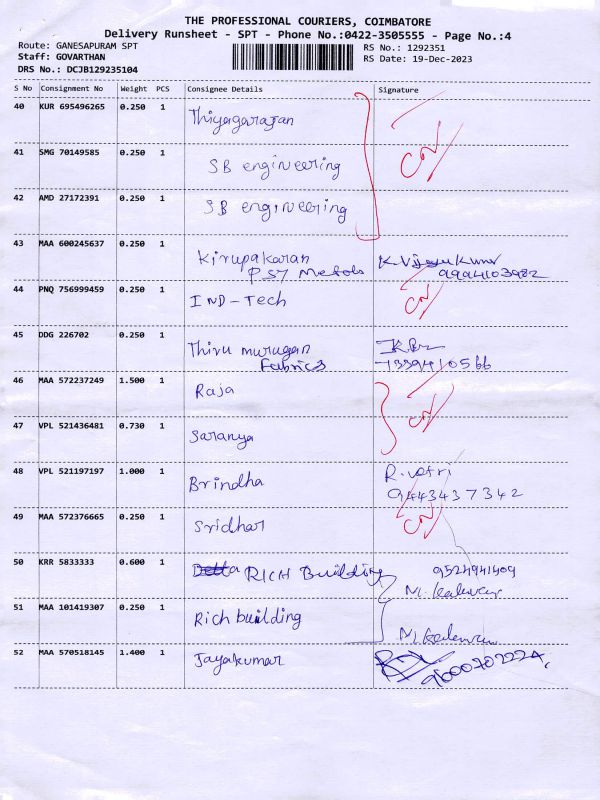 THE PROFESSIONAL COURIERS, COIMBATORE
Delivery Runsheet - SPT - Phone No.:0422-3505555 - Page No.:4
Route: GANESAPURAM SPT RS No.: 1292351
Staff: GOVARTHAN RS Date: 19-Dec-2023
DRS No.: DCJB129235104
S No Consignment No Weight PCS Consignee Details Signature
40 KUR 695496265 0.250 1 Thiyagarajan
CN
41 SMG 70149585 0.250 1 SB engineering
42 AMD 27172391 0.250 1 SB engineering
43 MAA 600245637 0.250 1 Kirupakaran K. Vijayakumar
PSY Metals 9994103982
44 PNQ 756999459 0.250 1 IND-Tech CN
45 DDG 226702 0.250 1 Thiru murugan
Fabrics 7339410566
46 MAA 572237249 1.500 1 Raja
CN
47 VPL 521436481 0.730 1 Saranya
48 VPL 521197197 1.000 1 Brindha R. Vetri
9443437342
49 MAA 572376665 0.250 1 Sridhar CN
50 KRR 5833333 0.600 1 RICH Building 9524941409
51 MAA 101419307 0.250 1 Rich building
52 MAA 570518145 1.400 1 Jayakumar 9600702224